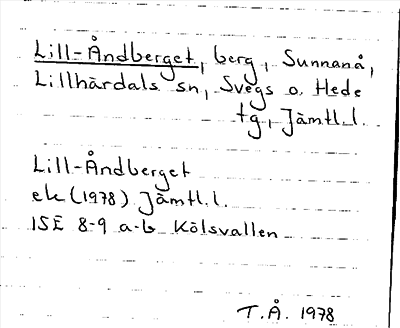 Lill-Åndberget, berg, Sunnanå,
Lillhärdals sn, Svegs o. Hede
tg, Jämtl.l.
Lill-Åndberget
ek (1978) Jämtl.l.
15E 8-9 a-b Kölsvallen
T.Å. 1978